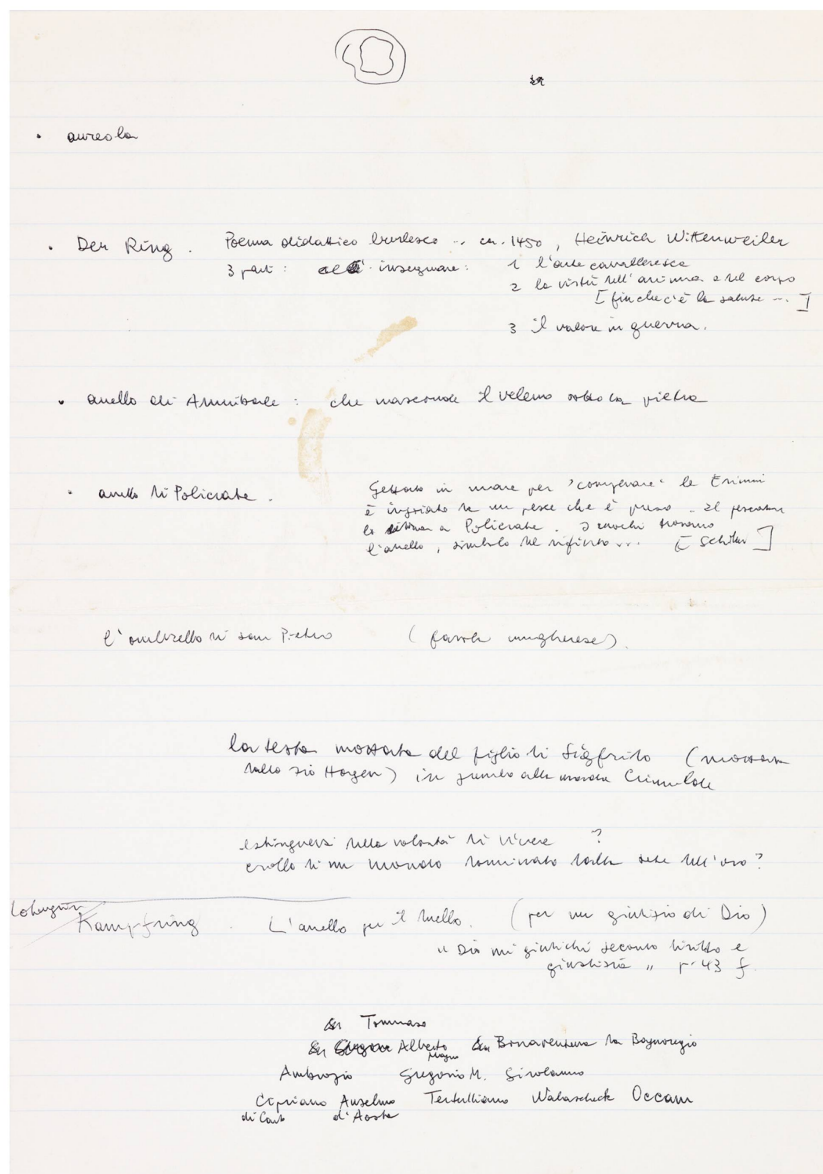 • aureola
• Der Ring. Poema didattico burlesco .. ca. 1450, Heinrich Wittenweiler
3 parti: insegnare: 1 l'arte cavalleresca
2 la virtù dell'anima e del corpo
[finche c'è la salute ...]
3 il valore in guerra.
• anello di Annibale: che nasconde il veleno sotto la pietra
• anello di Policrate. Gettato in mare per le Erinni
è ingoiato da un pesce che è preso .. il pescatore
lo a Policrate. I cuochi trovano
l'anello, simbolo del rifiuto ... [Schiller]
l'ombrello di san Pietro (favola ungherese).
la testa mozzata del figlio di Sigfrido (mozzata
dallo zio Hagen) in grembo alla madre Crimilde
estinguersi della volontà di vivere ?
crollo di un mondo dominato dalla sete dell'oro?
Lohengrin
Kampfring. L'anello per il duello. (per un giudizio di Dio)
" Dio mi giudichi secondo diritto e
giustizia " p. 43 f.
San Tommaso
San Alberto Magno San Bonaventura da Bagnoregio
Ambrogio Gregorio M. Girolamo
Cipriano Anselmo Tertulliano Occam
di Cart d'Aosta